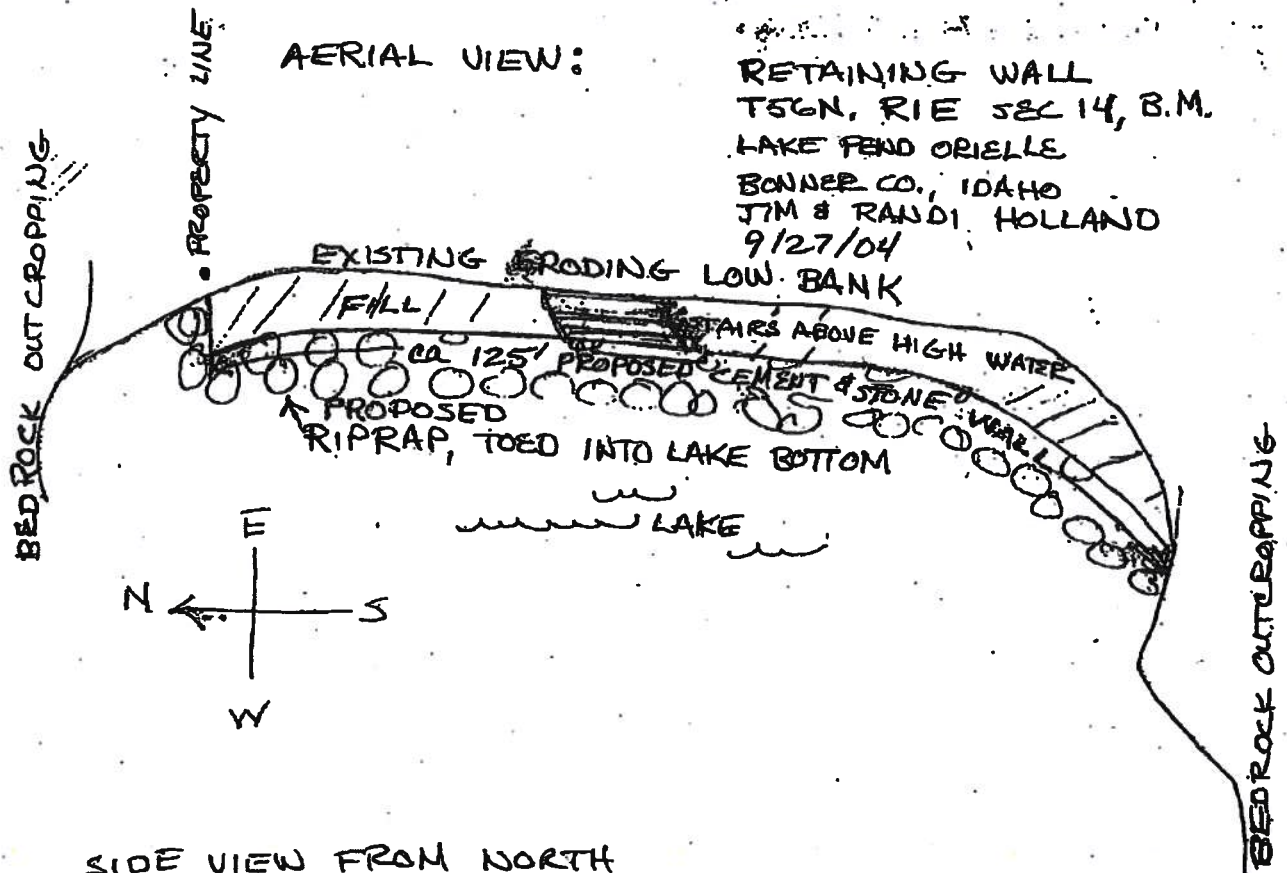 AERIAL VIEW:
RETAINING WALL
T56N, R1E SEC 14, B.M.
LAKE PEND ORIELLE
BONNER CO., IDAHO
JIM & RANDI HOLLAND
9/27/04
BEDROCK OUTCROPPING
PROPERTY LINE
EXISTING ERODING LOW BANK
FILL
STAIRS ABOVE HIGH WATER
ca 125' PROPOSED CEMENT & STONE WALL
PROPOSED
RIPRAP, TOED INTO LAKE BOTTOM
LAKE
E
N
S
W
BEDROCK OUTCROPPING
SIDE VIEW FROM NORTH